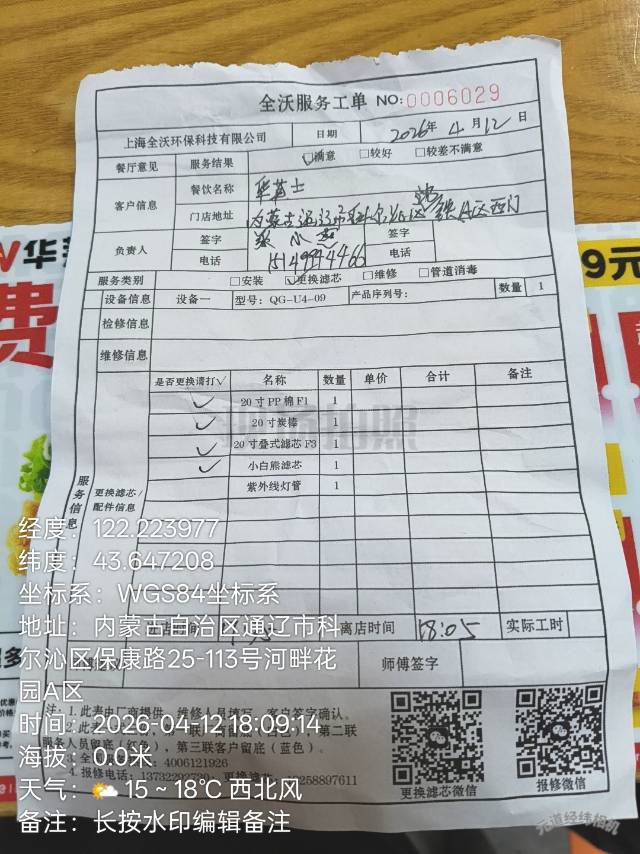 全沃服务工单 NO:0006029
上海全沃环保科技有限公司 日期 2026年 4月 12日
餐厅意见 服务结果 ☑满意 □较好 □较差不满意
客户信息 餐饮名称 华莱士
门店地址 内蒙古通辽市科尔沁区 A区西门
负责人 签字 签字
电话 电话
服务类别 □安装 ☑更换滤芯 □维修 □管道消毒
设备信息 设备一 型号: QG-U4-09 产品序列号: 数量 1
检修信息
维修信息
服务信息
更换滤芯/配件信息
是否更换请打√ 名称 数量 单价 合计 备注
✓ 20寸PP棉F1 1
✓ 20寸炭棒 1
✓ 20寸叠式滤芯F3 1
✓ 小白熊滤芯 1
紫外线灯管 1
离店时间 18:05 实际工时
师傅签字
注: 1.此表由厂商提供，维修人员填写，客户签字确认。
第二联
服务人员留底（红色），第三联客户留底（蓝色）。
4006121926
4.报修电话: 更换滤芯
更换滤芯微信 报修微信
经度：122.223977
纬度：43.647208
坐标系：WGS84坐标系
地址：内蒙古自治区通辽市科
尔沁区保康路25-113号河畔花
园A区
时间：2026-04-12 18:09:14
海拔：0.0米
天气：🌤 15 ~ 18℃ 西北风
备注：长按水印编辑备注
元道经纬相机
华
费
9元